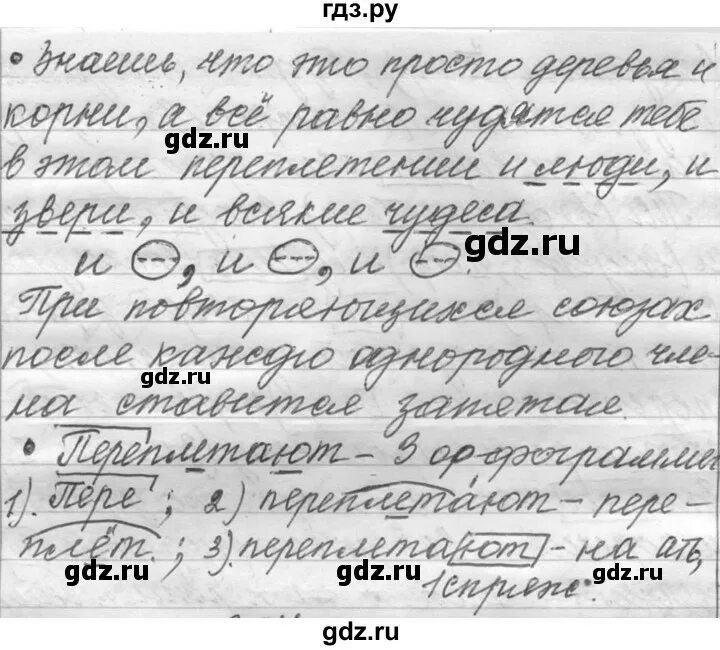 гдз.ру
• Знаешь, что это просто деревья и
корни, а всё равно чудятся тебе
gdz.ru
в этом переплетении и люди, и
звери, и всякие чудеса.
gdz.ru
и ⊖, и ⊖, и ⊖.
При повторяющихся союзах
после каждо однородного чле-
gdz.ru
на ставится запятая.
• Переплетают – 3 орфограммы
gdz.ru
1). Пере ; 2) переплетают – пере-
плёт. ; 3). переплетают – на ать,
gdz.ru gdz.ru gdz.ru
1 спряж.
gdz.ru